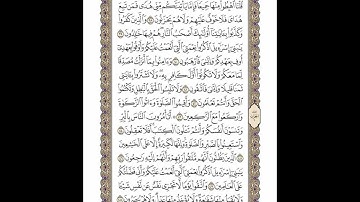 قُلْنَا ٱهْبِطُوا۟ مِنْهَا جَمِيعًا ۖ فَإِمَّا يَأْتِيَنَّكُم مِّنِّى هُدًى فَمَن تَبِعَ
هُدَاىَ فَلَا خَوْفٌ عَلَيْهِمْ وَلَا هُمْ يَحْزَنُونَ ٣٨ وَٱلَّذِينَ كَفَرُوا۟
وَكَذَّبُوا۟ بِـَٔايَـٰتِنَآ أُو۟لَـٰٓئِكَ أَصْحَـٰبُ ٱلنَّارِ ۖ هُمْ فِيهَا خَـٰلِدُونَ ٣٩
يَـٰبَنِىٓ إِسْرَٰٓءِيلَ ٱذْكُرُوا۟ نِعْمَتِىَ ٱلَّتِىٓ أَنْعَمْتُ عَلَيْكُمْ وَأَوْفُوا۟
بِعَهْدِىٓ أُوفِ بِعَهْدِكُمْ وَإِيَّـٰىَ فَٱرْهَبُونِ ٤٠ وَءَامِنُوا۟ بِمَآ أَنزَلْتُ مُصَدِّقًا
لِّمَا مَعَكُمْ وَلَا تَكُونُوٓا۟ أَوَّلَ كَافِرٍۭ بِهِۦ ۖ وَلَا تَشْتَرُوا۟ بِـَٔايَـٰتِى
ثَمَنًا قَلِيلًا وَإِيَّـٰىَ فَٱتَّقُونِ ٤١ وَلَا تَلْبِسُوا۟ ٱلْحَقَّ بِٱلْبَـٰطِلِ وَتَكْتُمُوا۟
ٱلْحَقَّ وَأَنتُمْ تَعْلَمُونَ ٤٢ وَأَقِيمُوا۟ ٱلصَّلَوٰةَ وَءَاتُوا۟ ٱلزَّكَوٰةَ
وَٱرْكَعُوا۟ مَعَ ٱلرَّٰكِعِينَ ٤٣ أَتَأْمُرُونَ ٱلنَّاسَ بِٱلْبِرِّ
وَتَنسَوْنَ أَنفُسَكُمْ وَأَنتُمْ تَتْلُونَ ٱلْكِتَـٰبَ ۚ أَفَلَا تَعْقِلُونَ ٤٤
وَٱسْتَعِينُوا۟ بِٱلصَّبْرِ وَٱلصَّلَوٰةِ ۚ وَإِنَّهَا لَكَبِيرَةٌ إِلَّا عَلَى ٱلْخَـٰشِعِينَ ٤٥
ٱلَّذِينَ يَظُنُّونَ أَنَّهُم مُّلَـٰقُوا۟ رَبِّهِمْ وَأَنَّهُمْ إِلَيْهِ رَٰجِعُونَ ٤٦
يَـٰبَنِىٓ إِسْرَٰٓءِيلَ ٱذْكُرُوا۟ نِعْمَتِىَ ٱلَّتِىٓ أَنْعَمْتُ عَلَيْكُمْ وَأَنِّى فَضَّلْتُكُمْ
عَلَى ٱلْعَـٰلَمِينَ ٤٧ وَٱتَّقُوا۟ يَوْمًا لَّا تَجْزِى نَفْسٌ عَن نَّفْسٍ شَيْـًٔا
وَلَا يُقْبَلُ مِنْهَا شَفَـٰعَةٌ وَلَا يُؤْخَذُ مِنْهَا عَدْلٌ وَلَا هُمْ يُنصَرُونَ ٤٨